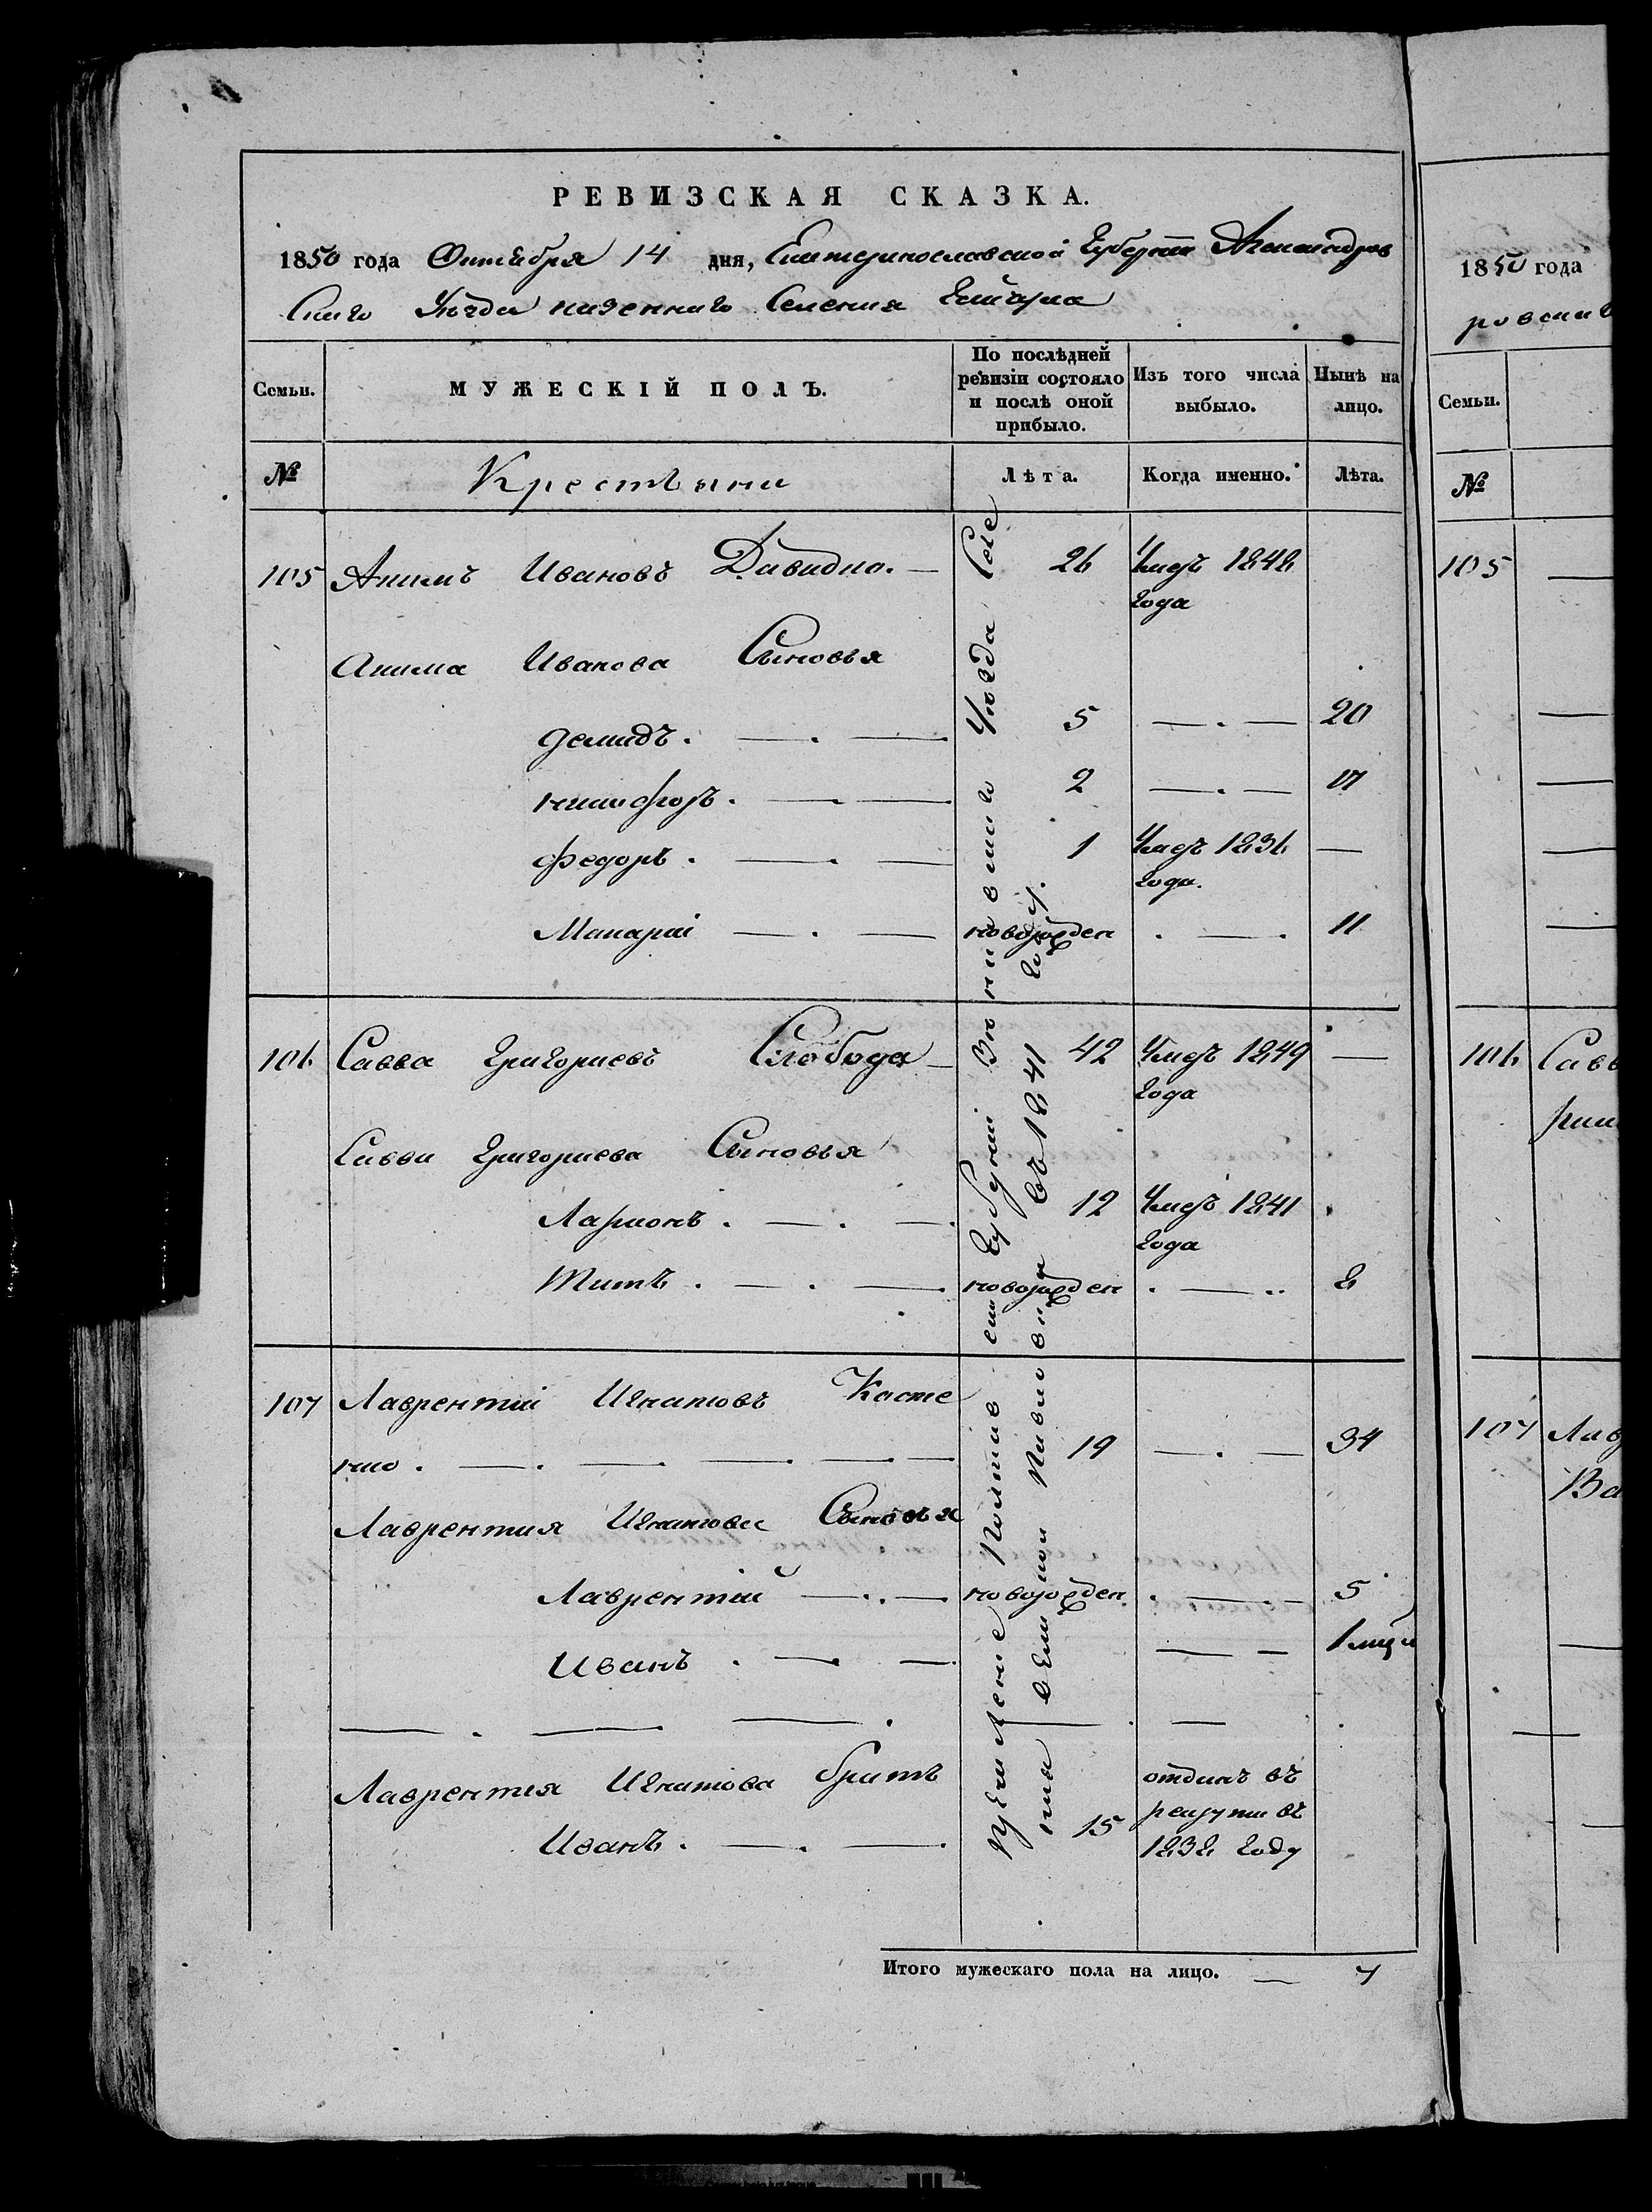 РЕВИЗСКАЯ СКАЗКА.
1850 года Октября 14 дня, Екатеринославской Губернии Александров
скаго Уѣзда казеннаго Селения
Семьи. МУЖЕСКІЙ ПОЛЪ. По послѣдней ревизіи состояло и послѣ оной прибыло. Изъ того числа выбыло. Нынѣ на лицо.
№ Крестьяни Лѣта. Когда именно. Лѣта.
105 Акимъ Ивановъ Давидко. — 26 Умеръ 1848
года
Акима Иванова Сыновья
Демидъ. — . — 5 — . — 20
Никифоръ. — . — 2 — . — 17
Федоръ. — . — 1 Умеръ 1836 —
года.
Макарій — . — новорожден . — . 11
106 Савва Григориевъ Слобода — 42 Умеръ 1849 —
года
Саввы Григориева Сыновья
Ларионъ . — . — 12 Умеръ 1841
года
Титъ . — . — новорожден . — .. 8
107 Лаврентій Игнатовъ Касте
нко . — . — . — . — 19 — . — 34
Лаврентия Игнатова Сыновья
Лаврентій — . . — новорожден . — . — 5
Иванъ . — . — — — 1 меся
Лаврентия Игнатова братъ
Иванъ . — . — 15 отданъ въ
рекруты въ
1838 году
Полтавской Губернии Зѣньковскаго Уѣзда
въ 1841 году.
Итого мужескаго пола на лицо. — 7
1850 года
ровскаго
Семьи.
№
105
106 Савв
107 Лав